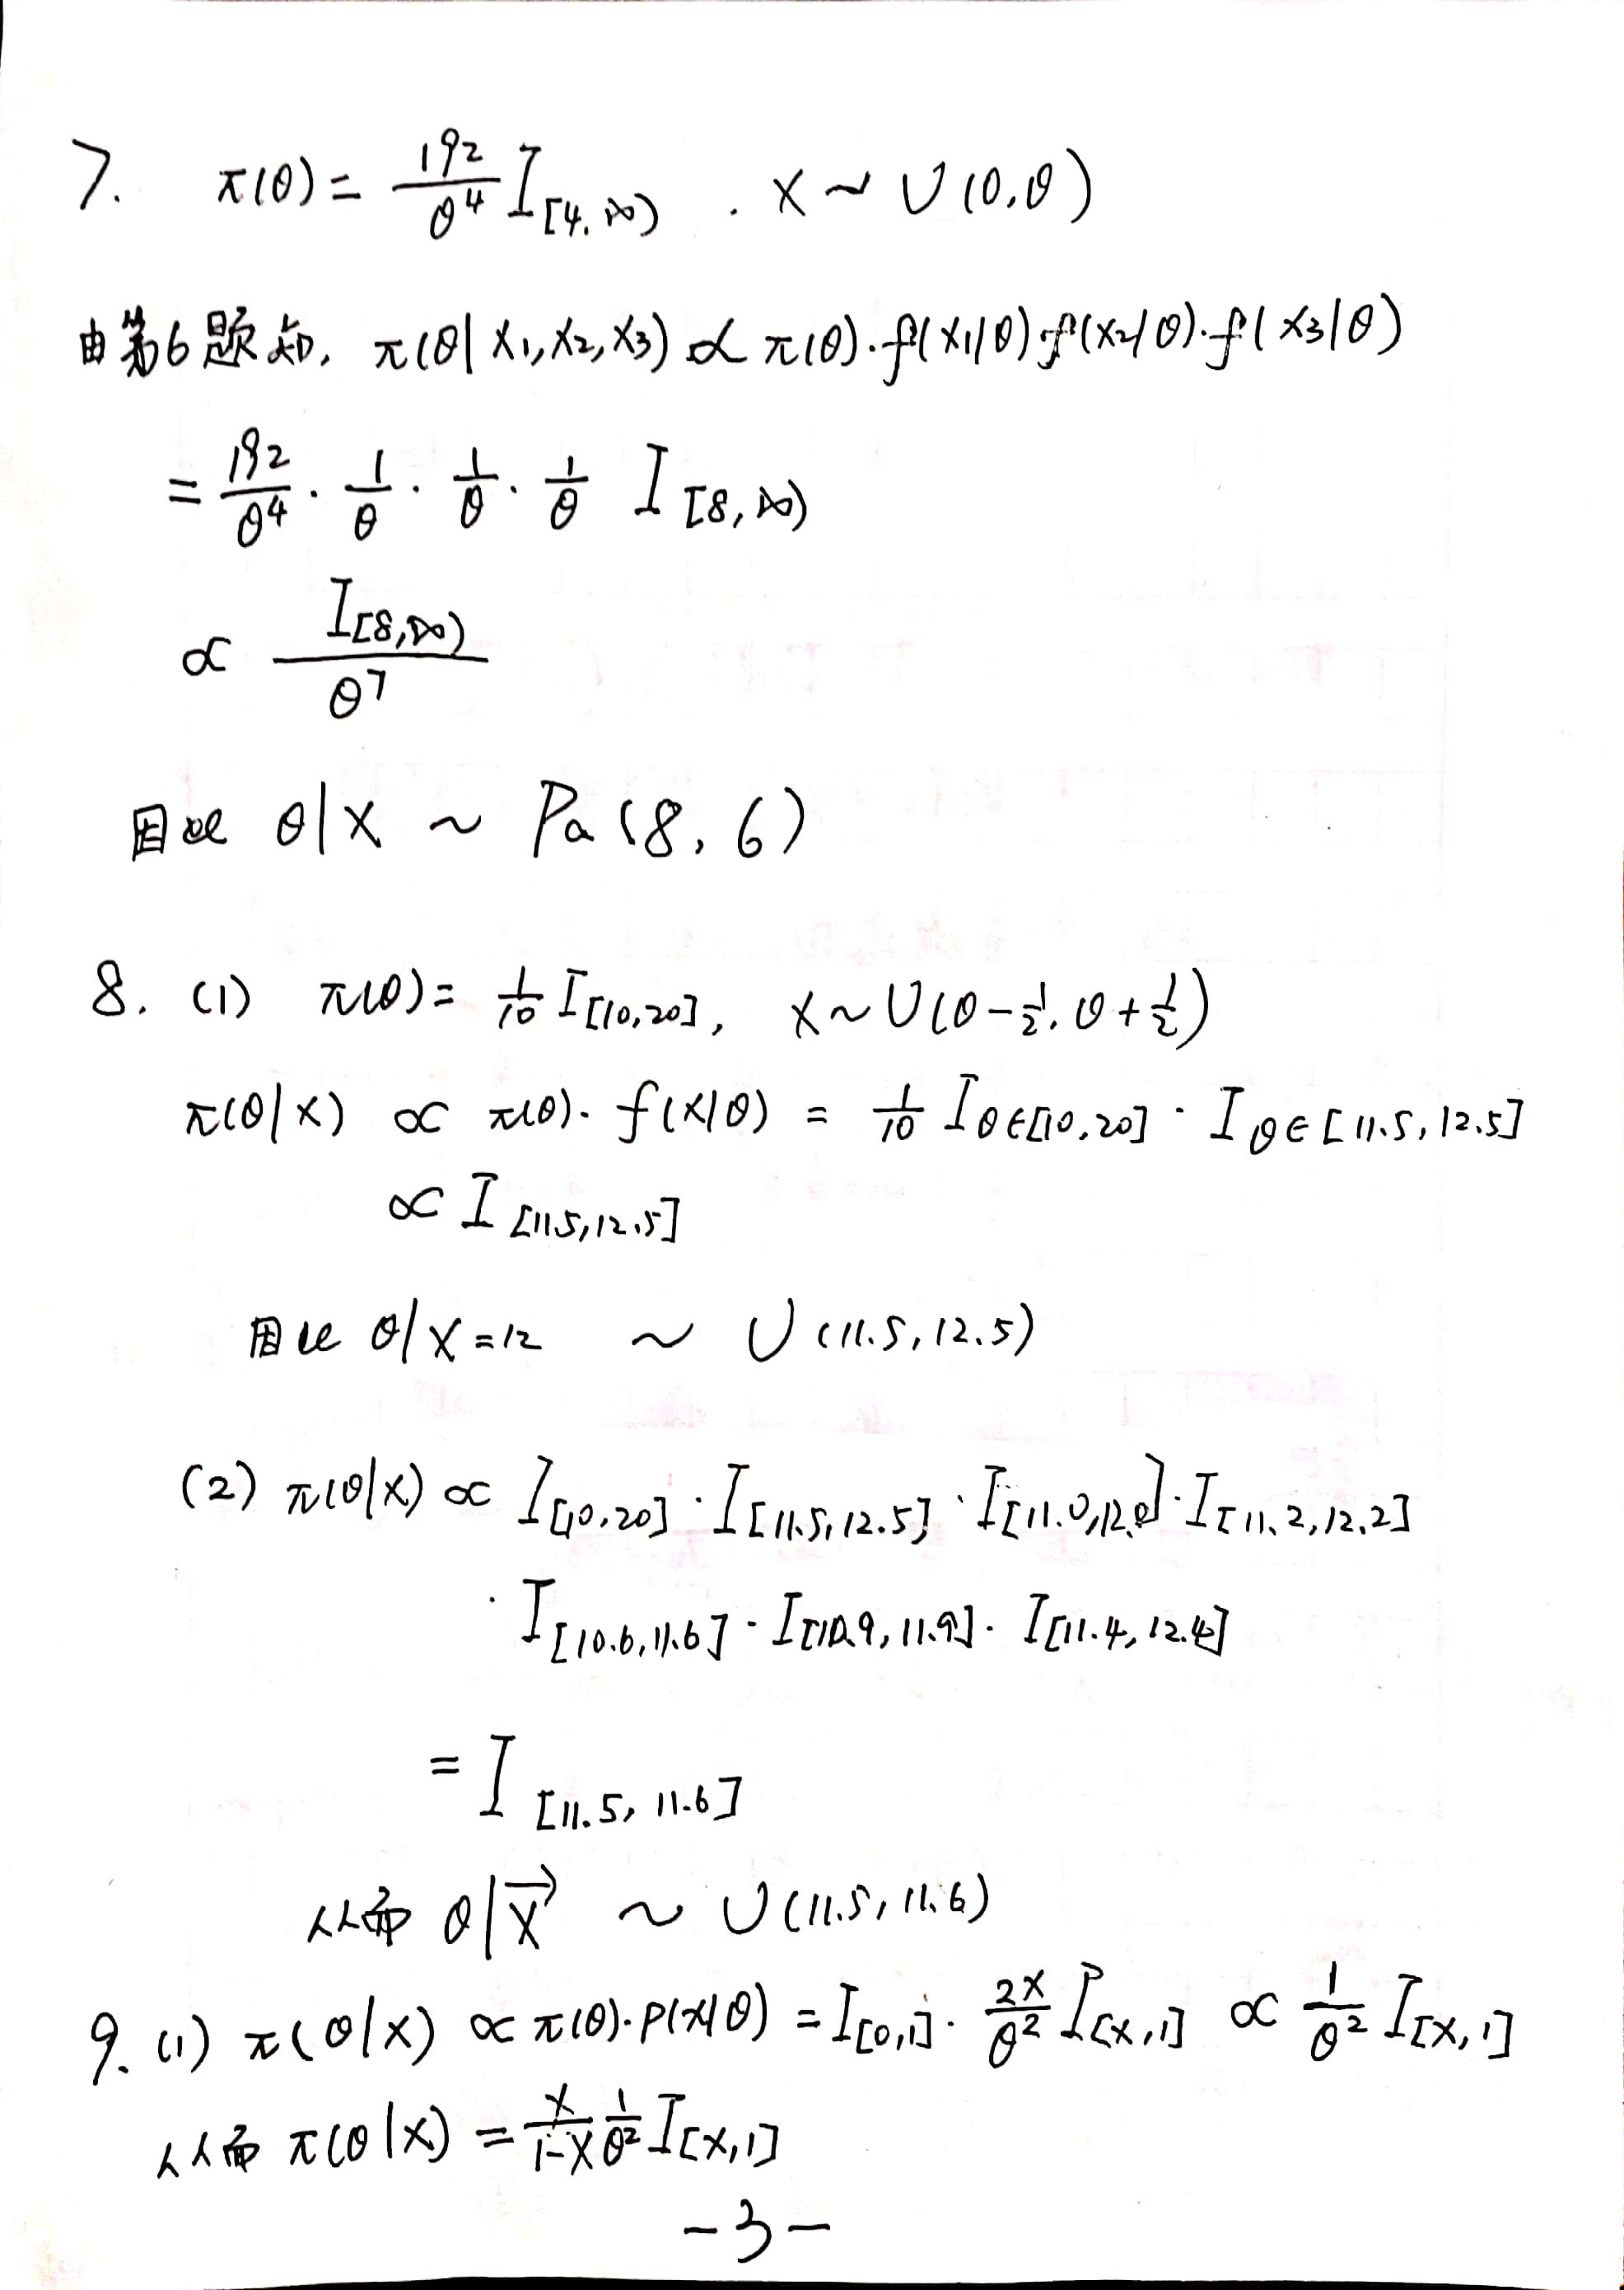 7. π(θ) = 192/θ⁴ I[4,∞) . X ~ U(0,θ)
由第6题知, π(θ|X₁,X₂,X₃) ∝ π(θ)·f(X₁|θ)·f(X₂|θ)·f(X₃|θ)
= 192/θ⁴ · 1/θ · 1/θ · 1/θ I[8,∞)
∝ I[8,∞)/θ⁷
因此 θ|X ~ Pa(8,6)
8. (1) π(θ) = 1/10 I[10,20], X ~ U(θ-1/2, θ+1/2)
π(θ|X) ∝ π(θ)· f(X|θ) = 1/10 I θ∈[10,20] · I θ∈[11.5,12.5]
∝ I[11.5,12.5]
因此 θ|X=12 ~ U(11.5,12.5)
(2) π(θ|X) ∝ I[10,20] · I[11.5,12.5] · I[11.0,12.0] · I[11.2,12.2]
· I[10.6,11.6] · I[10.9,11.9] · I[11.4,12.4]
= I[11.5,11.6]
从而 θ|X⃗ ~ U(11.5,11.6)
9. (1) π(θ|X) ∝ π(θ)·P(X|θ) = I[0,1] · 2X/θ² I[X,1] ∝ 1/θ² I[X,1]
从而 π(θ|X) = X/(1-X) 1/θ² I[X,1]
-3-